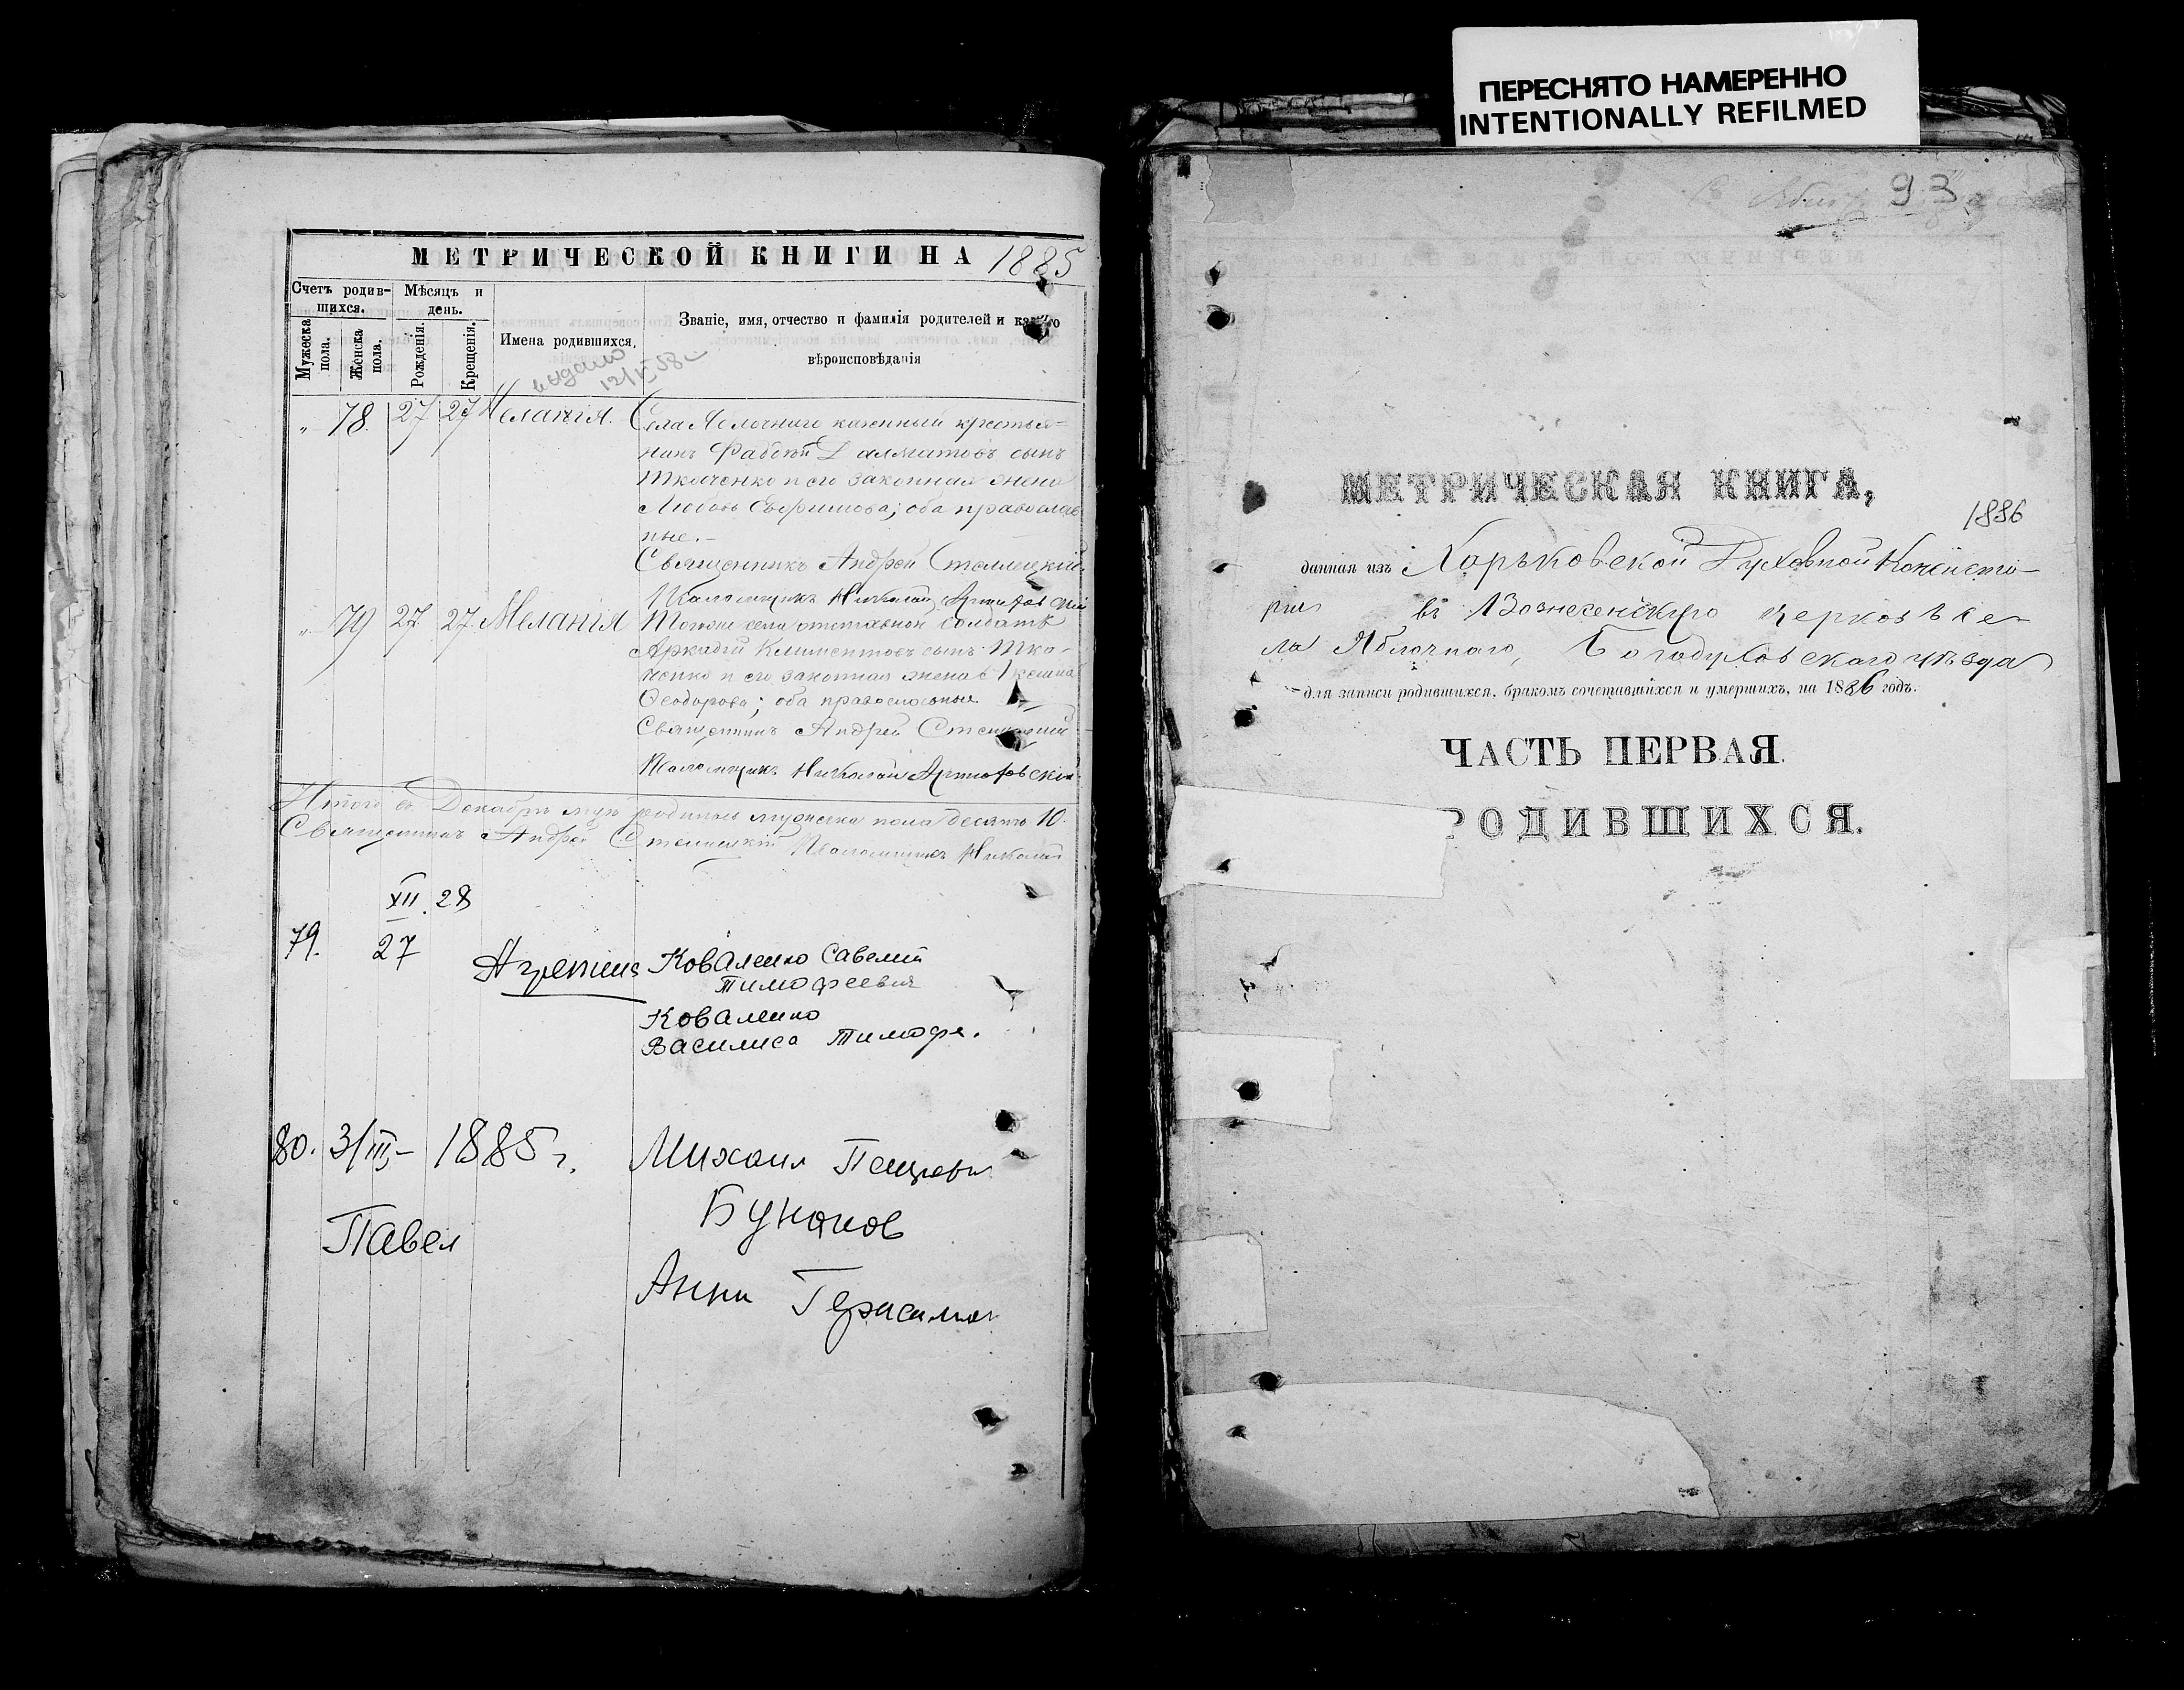 ПЕРЕСНЯТО НАМЕРЕННО
INTENTIONALLY REFILMED
МЕТРИЧЕСКОЙ КНИГИ НА 1885
Счетъ родив-
шихся.
Мѣсяцъ и
день.
Мужеска
пола.
Женска
пола.
Рожденія.
Крещенія.
Имена родившихся.
Званіе, имя, отчество и фамилія родителей и какого
вѣроисповѣданія
выдано
12/V 58
„ 78. 27 27 Меланія. Села Яблочнаго казенный крестья-
нинъ Далматовъ сынъ
Ткаченко и его законная жена
Любовь Ефимова; оба православ
ные.-
Священникъ Андрей Стеллецкій
Псаломщикъ Николай
„ 79 27 27 Меланія Тогоже села отставной солдатъ
Аркадій Климентовъ сынъ Тка-
ченко и его законная жена
Ѳеодорова; оба православные
Священникъ Андрей Стеллецкій
Псаломщикъ Николай Артюховскій
Итого въ Декабрѣ родилось мужеска пола десять 10.
Священникъ Андрей Стеллецкій Псаломщикъ Николай
XII. 28
79. 27
Коваленко Савелий
Тимофеевич
Коваленко
Василиса Тимофе.
80. 3/III,- 1885 г. Михаил
Павел
Анна
93
МЕТРИЧЕСКАЯ КНИГА,
1886
данная изъ Харьковской Духовной Консисто-
ріи въ Вознесенскую церковь се-
ла Яблочнаго, Богодуховскаго уѣзда
для записи родившихся, бракомъ сочетавшихся и умершихъ, на 1886 годъ.
ЧАСТЬ ПЕРВАЯ.
РОДИВШИХСЯ.